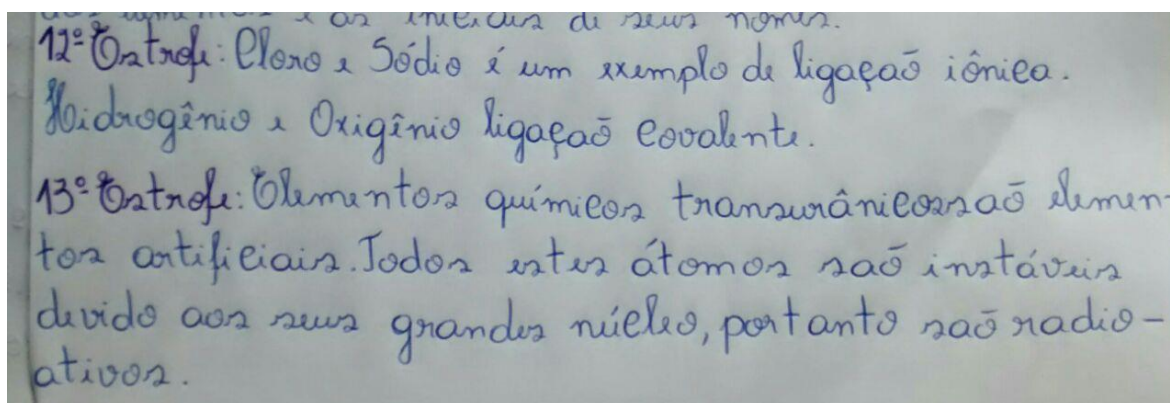 e as iniciais de seus nomes.
12º Estrofe: Cloro e Sódio é um exemplo de ligação iônica.
Hidrogênio e Oxigênio ligação covalente.
13º Estrofe: Elementos químicos transurânicos são elemen-
tos artificiais. Todos estes átomos são instáveis
devido aos seus grandes núcleo, portanto são radio-
ativos.